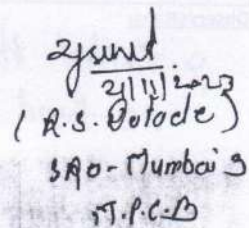 2/11/2023
(R.S. Dotode)
SRO-Mumbai 3
M.P.C.B